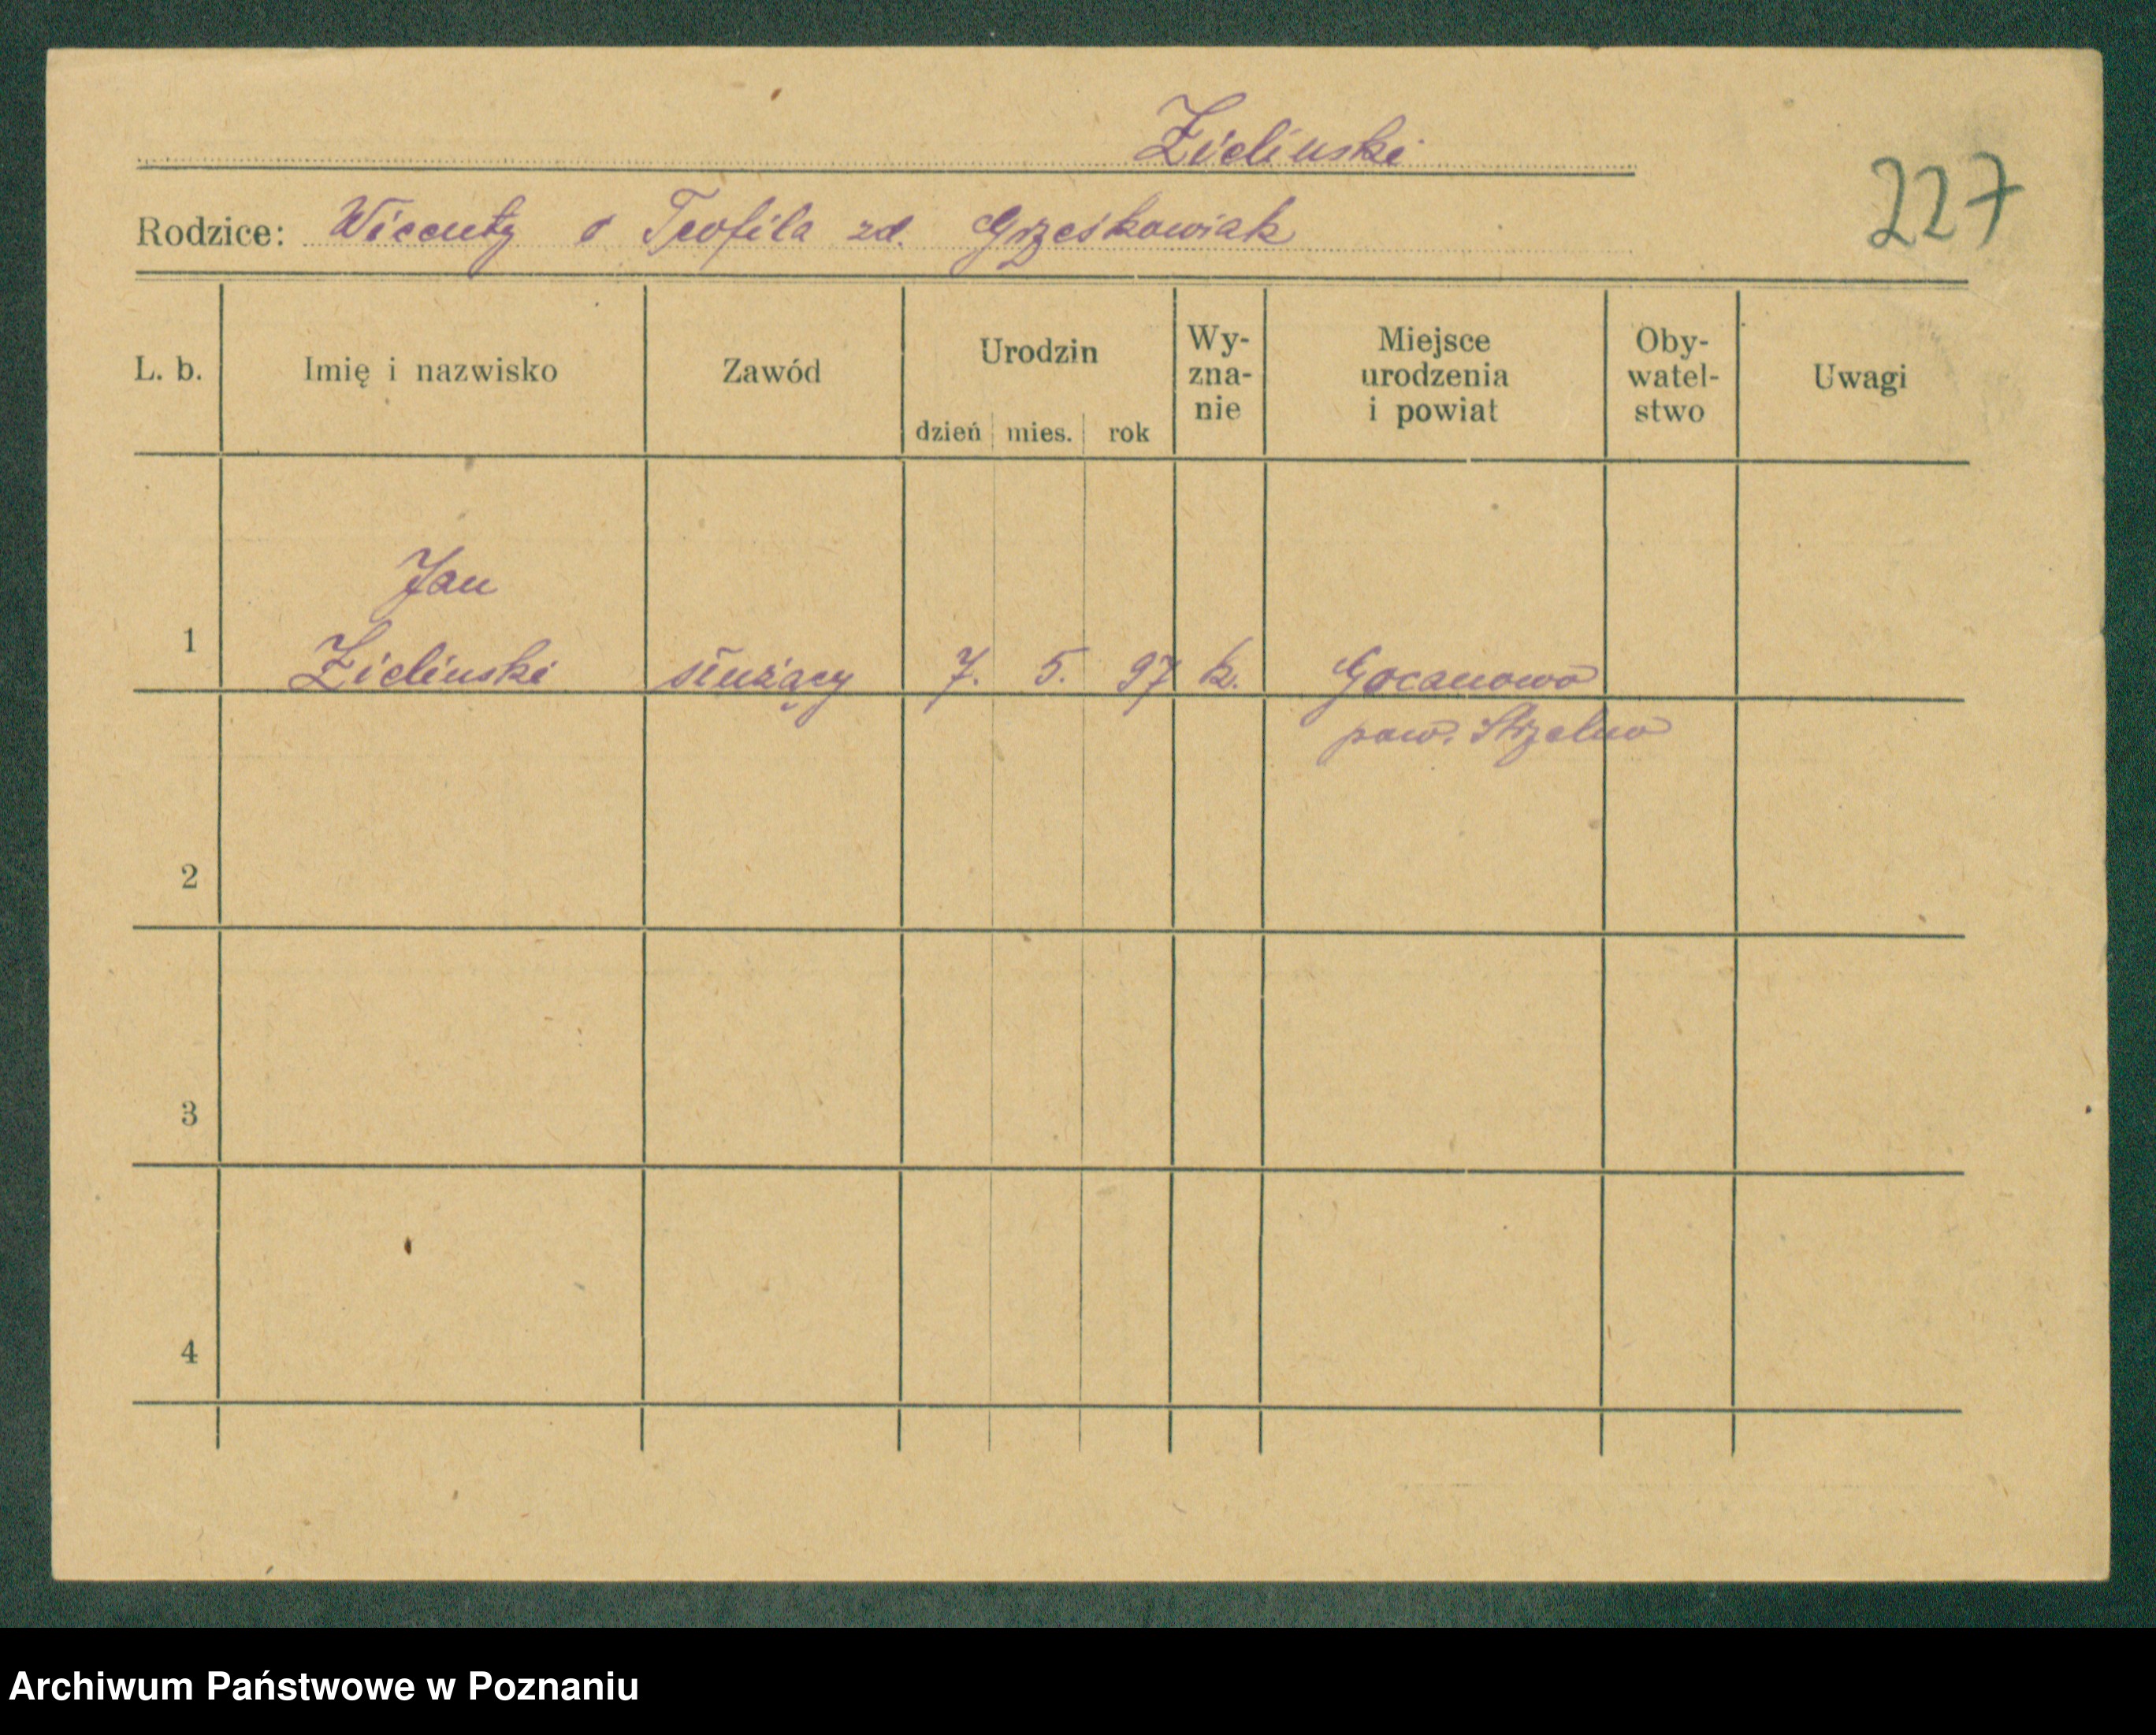 Zieliński
227
Rodzice: Wicenty i Teofila zd. Grześkowiak
L. b. Imię i nazwisko Zawód Urodzin dzień mies. rok Wy-zna-nie Miejsce urodzenia i powiat Oby-watel-stwo Uwagi
Jan
1 Zieliński służący 7. 5. 97 k. Gocanowo
pow. Strzelno
2
3
4
Archiwum Państwowe w Poznaniu